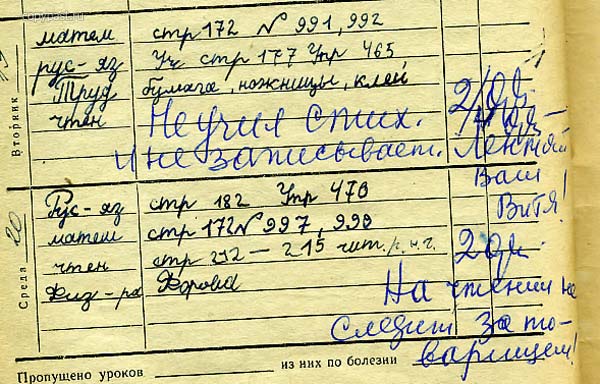 Вторник
матем стр 172 № 991, 992
рус-яз Уч стр 177 Упр 465
Труд бумага, ножницы, клей
чтен Не учил стих. 2/два
и не записывает. Лентяй
Ваш
Витя!
Среда 20
Рус-яз стр 182 Упр 478
матем стр 172 № 997, 998
чтен стр 212 - 215 чит.
Физ-ра Форма
На чтении не
следит за то-
варищем!
Пропущено уроков из них по болезни